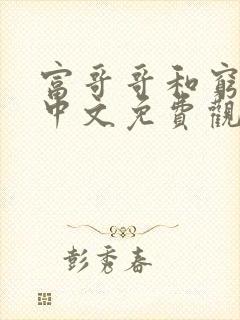 富哥哥和窮
中文免費觀
彭秀春